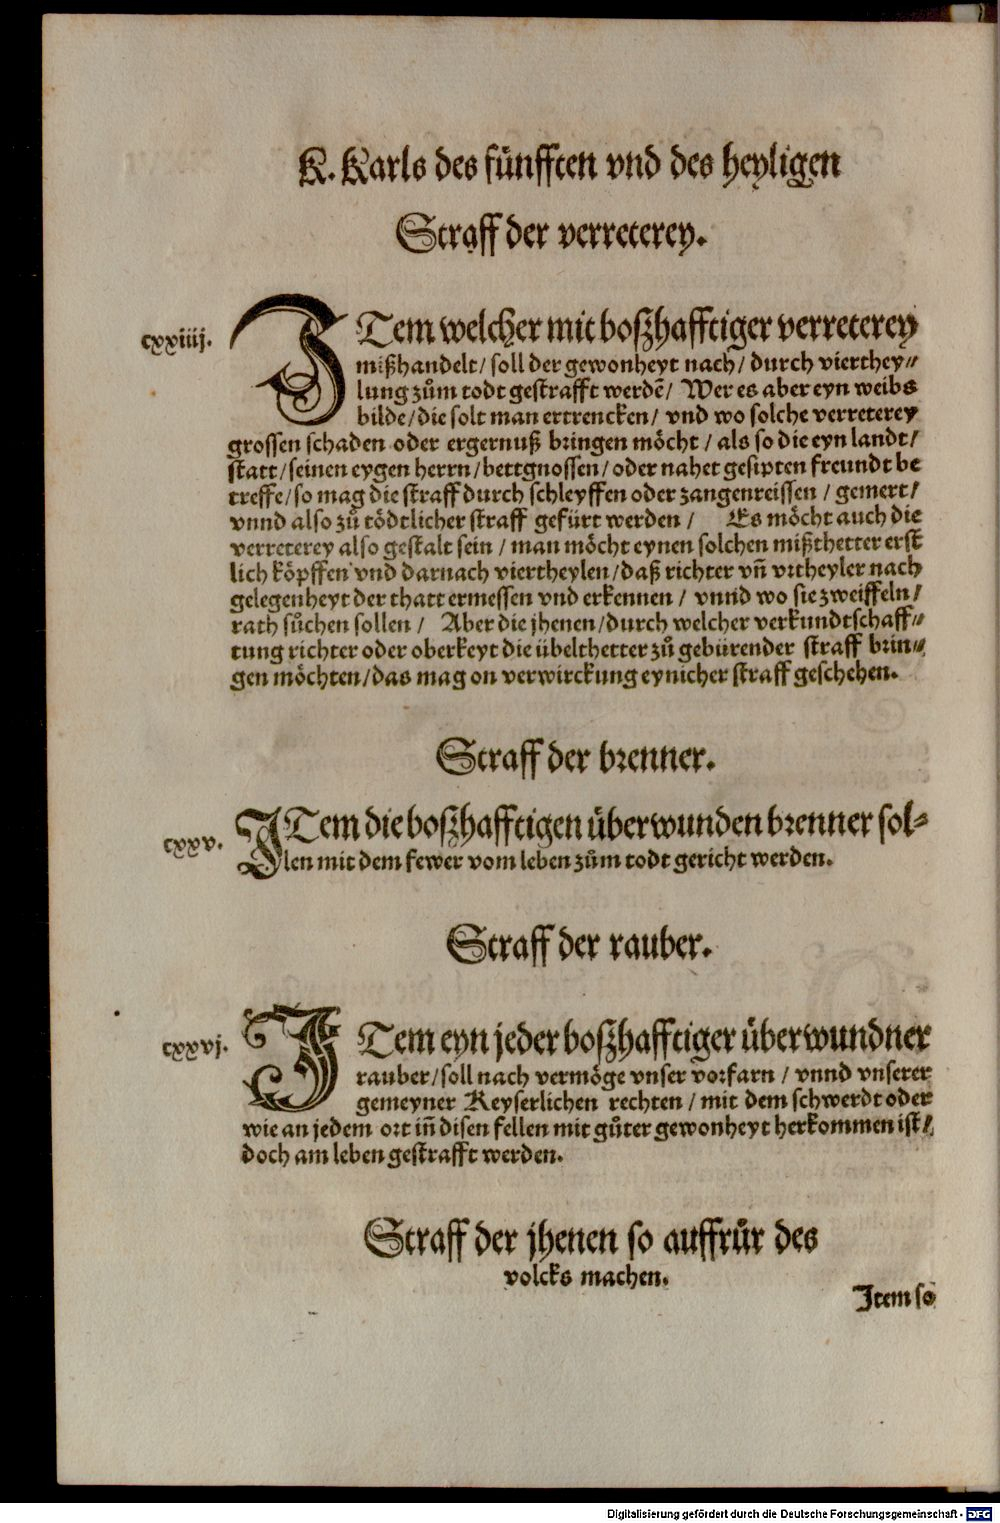 K. Karls des fünfften vnd des heyligen
Straff der verreterey.
cxxiiij.
ITem welcher mit boßhafftiger verreterey
mißhandelt / soll der gewonheyt nach / durch vierthey⸗
lung zům todt gestrafft werdē / Wer es aber eyn weibs
bilde / die solt man ertrencken / vnd wo solche verreterey
grossen schaden oder ergernuß bringen möcht / als so die eyn landt /
statt / seinen eygen herrn / bettgnossen / oder nahet gesipten freundt be
treffe / so mag die straff durch schleyffen oder zangenreissen / gemert /
vnnd also zů tödtlicher straff gefürt werden / Es möcht auch die
verreterey also gestalt sein / man möcht eynen solchen mißthetter erst
lich köpffen vnd darnach viertheylen / daß richter vñ vrtheyler nach
gelegenheyt der thatt ermessen vnd erkennen / vnnd wo sie zweiffeln /
rath sůchen sollen / Aber die jhenen / durch welcher verkundtschaff⸗
tung richter oder oberkeyt die übelthetter zů gebürender straff brin⸗
gen möchten / das mag on verwirckung eynicher straff geschehen.
Straff der brenner.
cxxv.
ITem die boßhafftigen überwunden brenner sol⸗
len mit dem fewer vom leben zům todt gericht werden.
Straff der rauber.
cxxvj.
ITem eyn jeder boßhafftiger überwundner
rauber / soll nach vermöge vnser vorfarn / vnnd vnserer
gemeyner Keyserlichen rechten / mit dem schwerdt oder
wie an jedem ort iñ disen fellen mit gůter gewonheyt herkommen ist /
doch am leben gestrafft werden.
Straff der jhenen so auffrůr des
volcks machen.
Item so
Digitalisierung gefördert durch die Deutsche Forschungsgemeinschaft - DFG